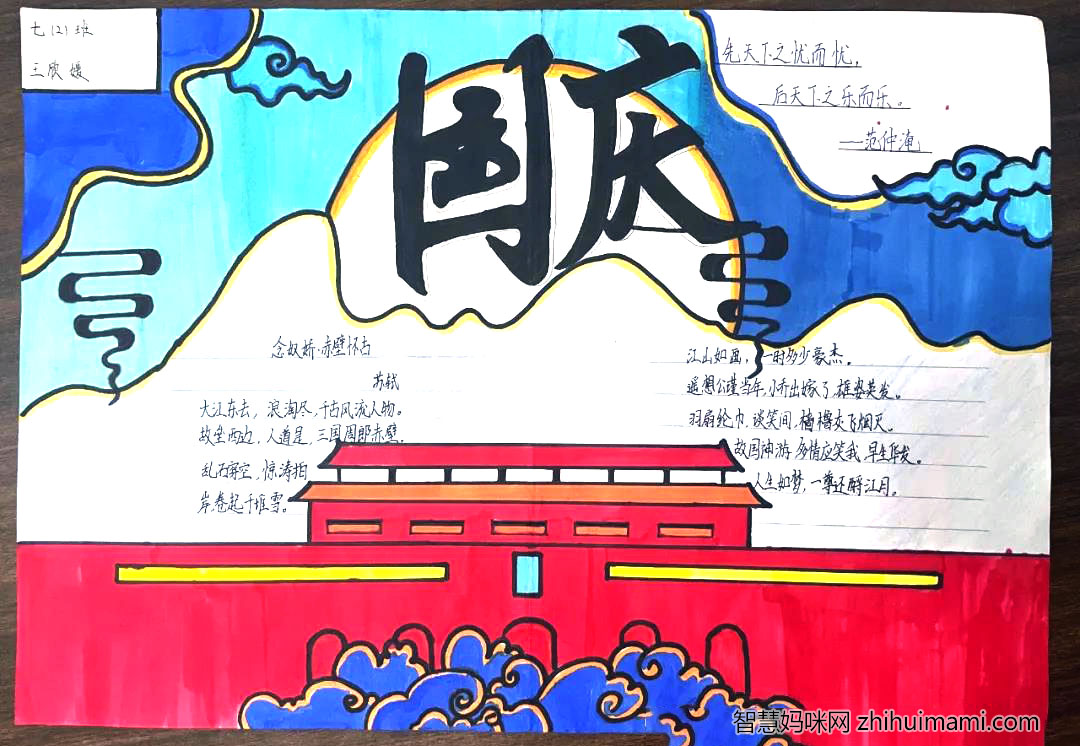 七(2)班
王欣媛
国庆
先天下之忧而忧，
后天下之乐而乐。
—范仲淹
念奴娇·赤壁怀古
苏轼
大江东去，浪淘尽，千古风流人物。
故垒西边，人道是，三国周郎赤壁。
乱石穿空，惊涛拍
岸，卷起千堆雪。
江山如画，一时多少豪杰。
遥想公瑾当年，小乔出嫁了，雄姿英发。
羽扇纶巾，谈笑间，樯橹灰飞烟灭。
故国神游，多情应笑我，早生华发。
人生如梦，一尊还酹江月。
智慧妈咪网 zhihuimami.com